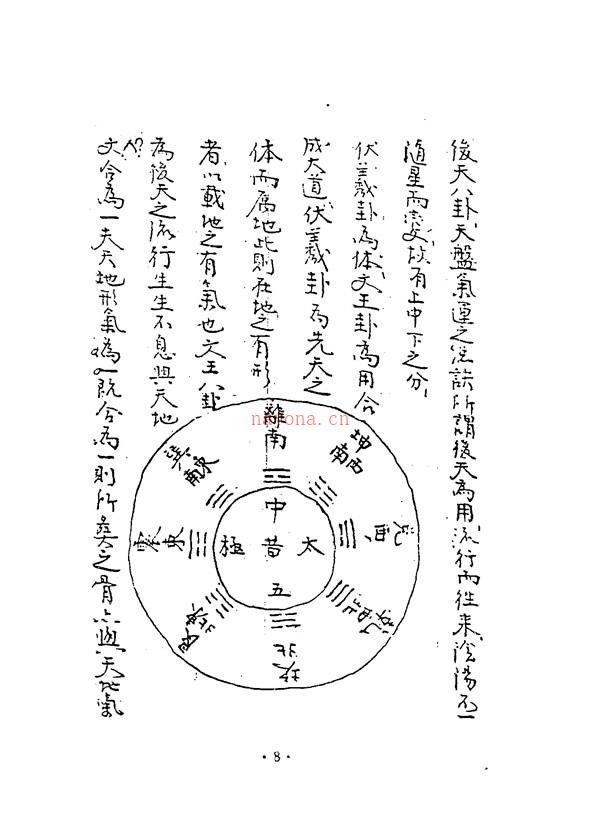 後天八卦天盤氣運之訣所謂後天為用流行而往来陰陽不一
隨星而変故有上中下之分
伏羲卦為体文王卦為用合
成大道伏羲卦為先天之
体而属地此則在地之有形
者以載地之有氣也文王八卦
為後天之流行生生不息與天地
人?
文合為一夫天地形氣為一既合為一則所葬之骨亦與天地氣
離南
坤西南
兌西
乾西北
坎北
艮東北
震東
巽東南
中
太黄極
五
nayona.cn
·8·